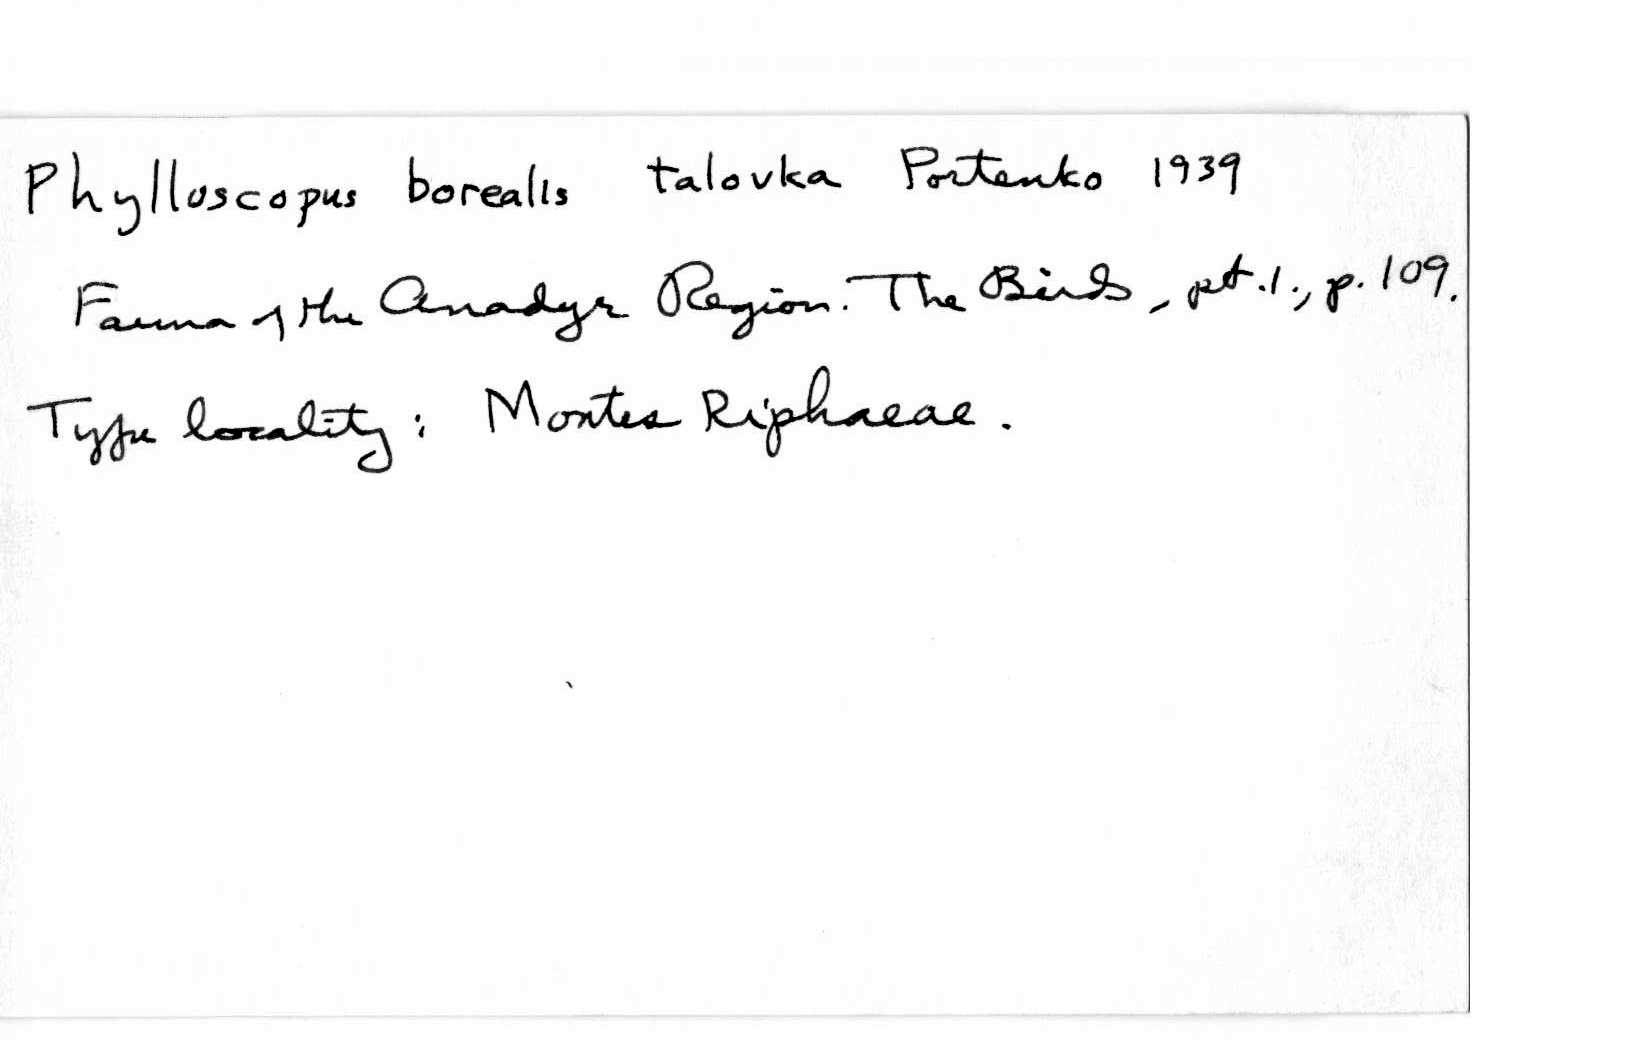 Phylloscopus borealis talovka Portenko 1939
Fauna of the Anadyr Region. The Birds, pt. 1., p. 109.
Type locality: Montes Riphaeae.